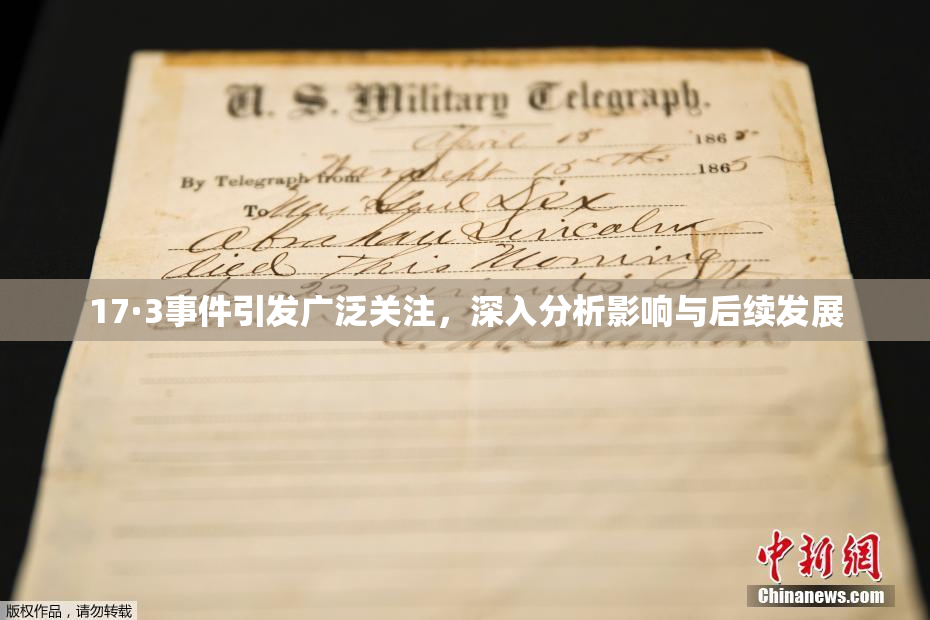 U. S. Military Telegraph.
April 15 1865
By Telegraph from War Dept 15th 1865
To Maj Genl Dix
Abraham Lincoln
died This Morning
at 22 minutes after
17·3事件引发广泛关注，深入分析影响与后续发展
E. M. Stanton
中新网
Chinanews.com
版权作品，请勿转载